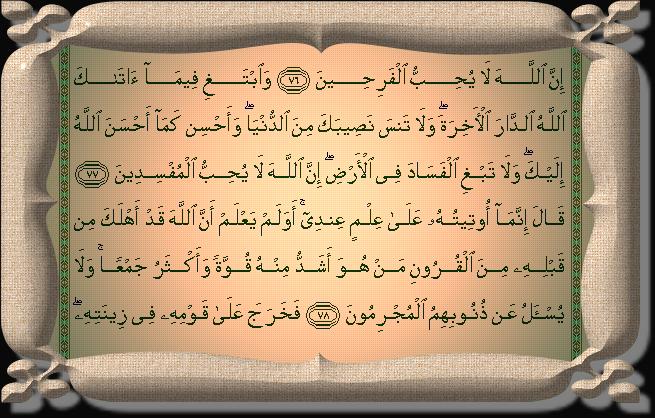 إِنَّ ٱللَّهَ لَا يُحِبُّ ٱلْفَرِحِينَ ﴿٧٦﴾ وَٱبْتَغِ فِيمَآ ءَاتَىٰكَ
ٱللَّهُ ٱلدَّارَ ٱلْأَخِرَةَ ۖ وَلَا تَنسَ نَصِيبَكَ مِنَ ٱلدُّنْيَا ۖ وَأَحْسِن كَمَآ أَحْسَنَ ٱللَّهُ
إِلَيْكَ ۖ وَلَا تَبْغِ ٱلْفَسَادَ فِى ٱلْأَرْضِ ۖ إِنَّ ٱللَّهَ لَا يُحِبُّ ٱلْمُفْسِدِينَ ﴿٧٧﴾
قَالَ إِنَّمَآ أُوتِيتُهُۥ عَلَىٰ عِلْمٍ عِندِىٓ ۚ أَوَلَمْ يَعْلَمْ أَنَّ ٱللَّهَ قَدْ أَهْلَكَ مِن
قَبْلِهِۦ مِنَ ٱلْقُرُونِ مَنْ هُوَ أَشَدُّ مِنْهُ قُوَّةً وَأَكْثَرُ جَمْعًا ۚ وَلَا
يُسْـَٔلُ عَن ذُنُوبِهِمُ ٱلْمُجْرِمُونَ ﴿٧٨﴾ فَخَرَجَ عَلَىٰ قَوْمِهِۦ فِى زِينَتِهِۦ ۖ